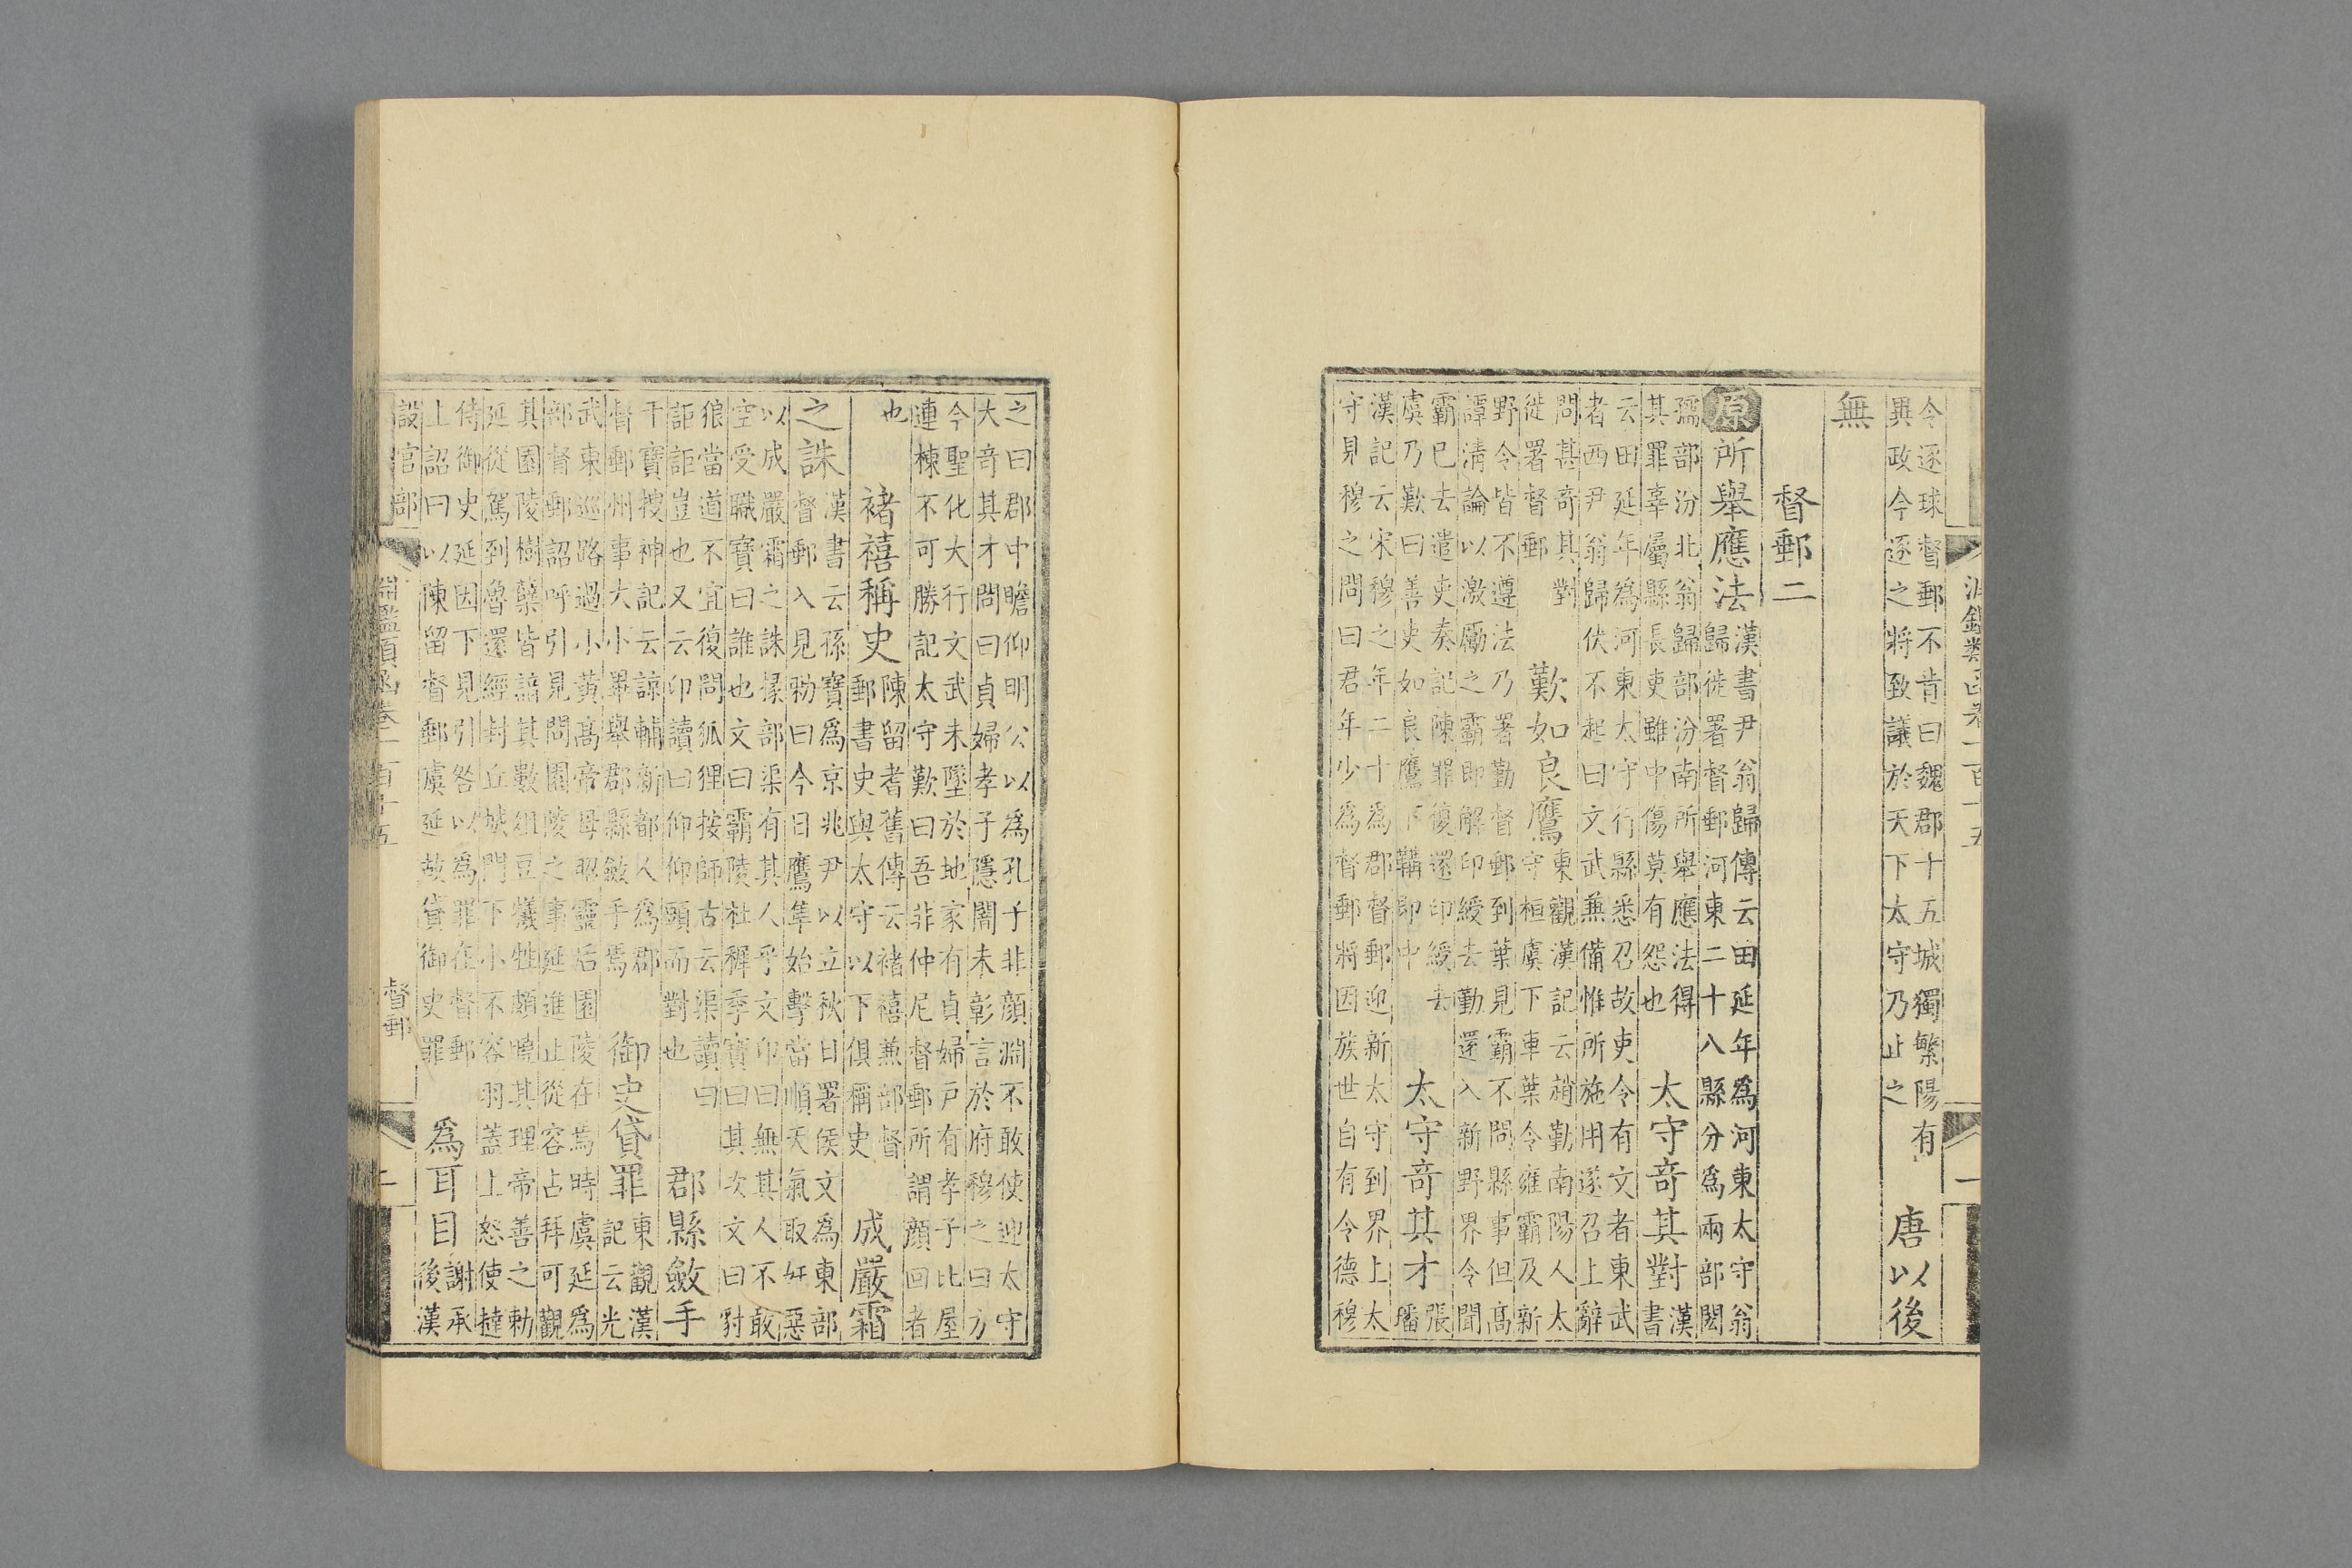 令逐球督郵不肯曰魏郡十五城獨繁陽有
異政今逐之將致議於天下太守乃止之
唐以後
無
督郵二
原所舉應法
漢書尹翁歸傳云田延年爲河東太守翁
歸徙署督郵河東二十八縣分爲兩部閎
孺部汾北翁歸部汾南所舉應法得
其罪辜屬縣長吏雖中傷莫有怨也
太守奇其對
漢
書
云田延年爲河東太守行縣悉召故吏令有文者東武
者西尹翁歸伏不起曰文武兼備惟所施用遂召上辭
問甚奇其對
徙署督郵
歎如良鷹
東觀漢記云趙勤南陽人太
守桓虞下車葉令雍霸及新
野令皆不遵法乃署勤督郵到葉見霸不問縣事但高
譚清論以激勵之霸即解印綬去勤還入新野界令聞
霸已去遣吏奏記陳罪復還印綬去
虞乃歎曰善吏如良鷹下韝即中
太守奇其才
張
璠
漢記云宋穆之年二十爲郡督郵迎新太守到界上太
守見穆之問曰君年少爲督郵將因族世自有令德穆
淵鑑類函卷一百十五
一
之曰郡中瞻仰明公以爲孔子非顏淵不敢使迎太守
大奇其才問曰貞婦孝子隱闇未彰言於府穆之曰方
今聖化大行文武未墜於地家有貞婦戶有孝子比屋
連棟不可勝記太守歎曰吾非仲尼督郵所謂顏回者
也
褚禧稱史
陳留耆舊傳云褚禧兼部督
郵書史與太守以下俱稱史
成嚴霜
之誅
漢書云孫寶爲京兆尹以立秋日署侯文爲東部
督郵入見勑曰今日鷹隼始擊當順天氣取奸惡
以成嚴霜之誅掾部渠有其人乎文卬曰無其人不敢
空受職寶曰誰也文曰霸陵杜穉季寶曰其次文曰豺
狼當道不宜復問狐狸按師古云渠讀曰
詎詎豈也又云卬讀曰仰仰頭而對也
郡縣斂手
干寶搜神記云諒輔新都人爲郡
督郵州事大小畢舉郡縣斂手焉
御史貸罪
東觀漢
記云光
武東巡路過小黃高帝母昭靈后園陵在焉時虞延爲
部督郵詔呼引見問園陵之事延進止從容占拜可觀
其園陵樹蘖皆諳其數俎豆犧牲頗曉其理帝善之勑
延從駕到魯還經封丘城門下小不容羽蓋上怒使撻
侍御史延因下見引咎以爲罪在督郵
上詔曰以陳留督郵虞延故貸御史罪
爲耳目
謝承
後漢
設官部
淵鑑類函卷一百十五
督郵
二